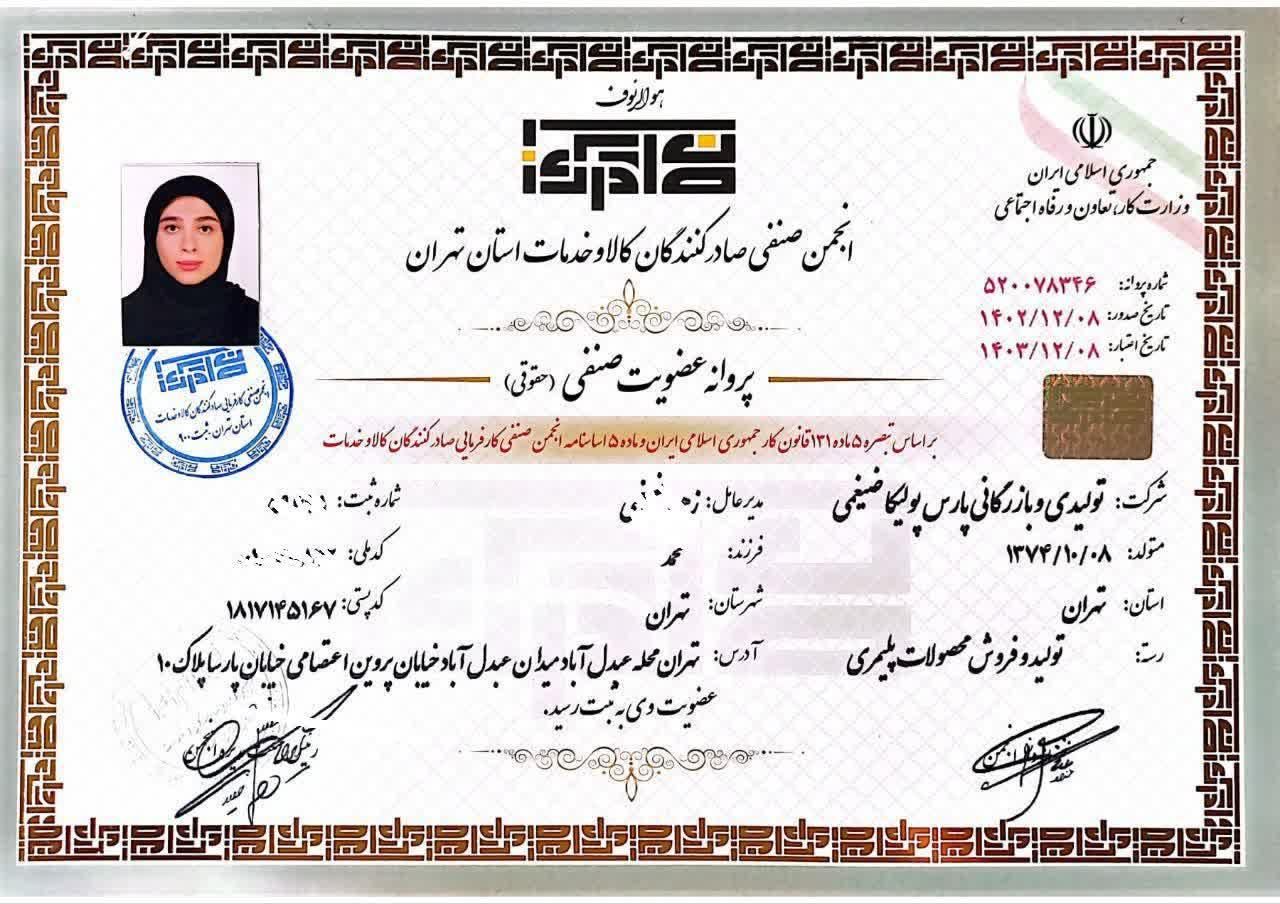 هوالرئوف
جمهوری اسلامی ایران
وزارت کار، تعاون و رفاه اجتماعی
انجمن صنفی صادرکنندگان کالا و خدمات استان تهران
شماره پروانه: ۵۲۰۰۷۸۳۴۶
تاریخ صدور: ۱۴۰۲/۱۲/۰۸
تاریخ اعتبار: ۱۴۰۳/۱۲/۰۸
پروانه عضویت صنفی (حقوقی)
انجمن صنفی کارفرمایی صادرکنندگان کالا و خدمات
استان تهران. ثبت ۹۰۰
بر اساس تبصره ۵ ماده ۱۳۱ قانون کار جمهوری اسلامی ایران و ماده ۵ اساسنامه انجمن صنفی کارفرمایی صادرکنندگان کالا و خدمات
شرکت: تولیدی و بازرگانی پارس پولیکا ضیغمی مدیرعامل: شماره ثبت:
متولد: ۱۳۷۴/۱۰/۰۸ فرزند: محمد کدملی:
استان: تهران شهرستان: تهران کدپستی: ۱۸۱۷۱۴۵۱۶۷
رسته: تولید و فروش محصولات پلیمری آدرس: تهران محله عبدل آباد میدان عبدل آباد خیابان پروین اعتصامی خیابان پارسا پلاک ۱۰
عضویت وی به ثبت رسید.